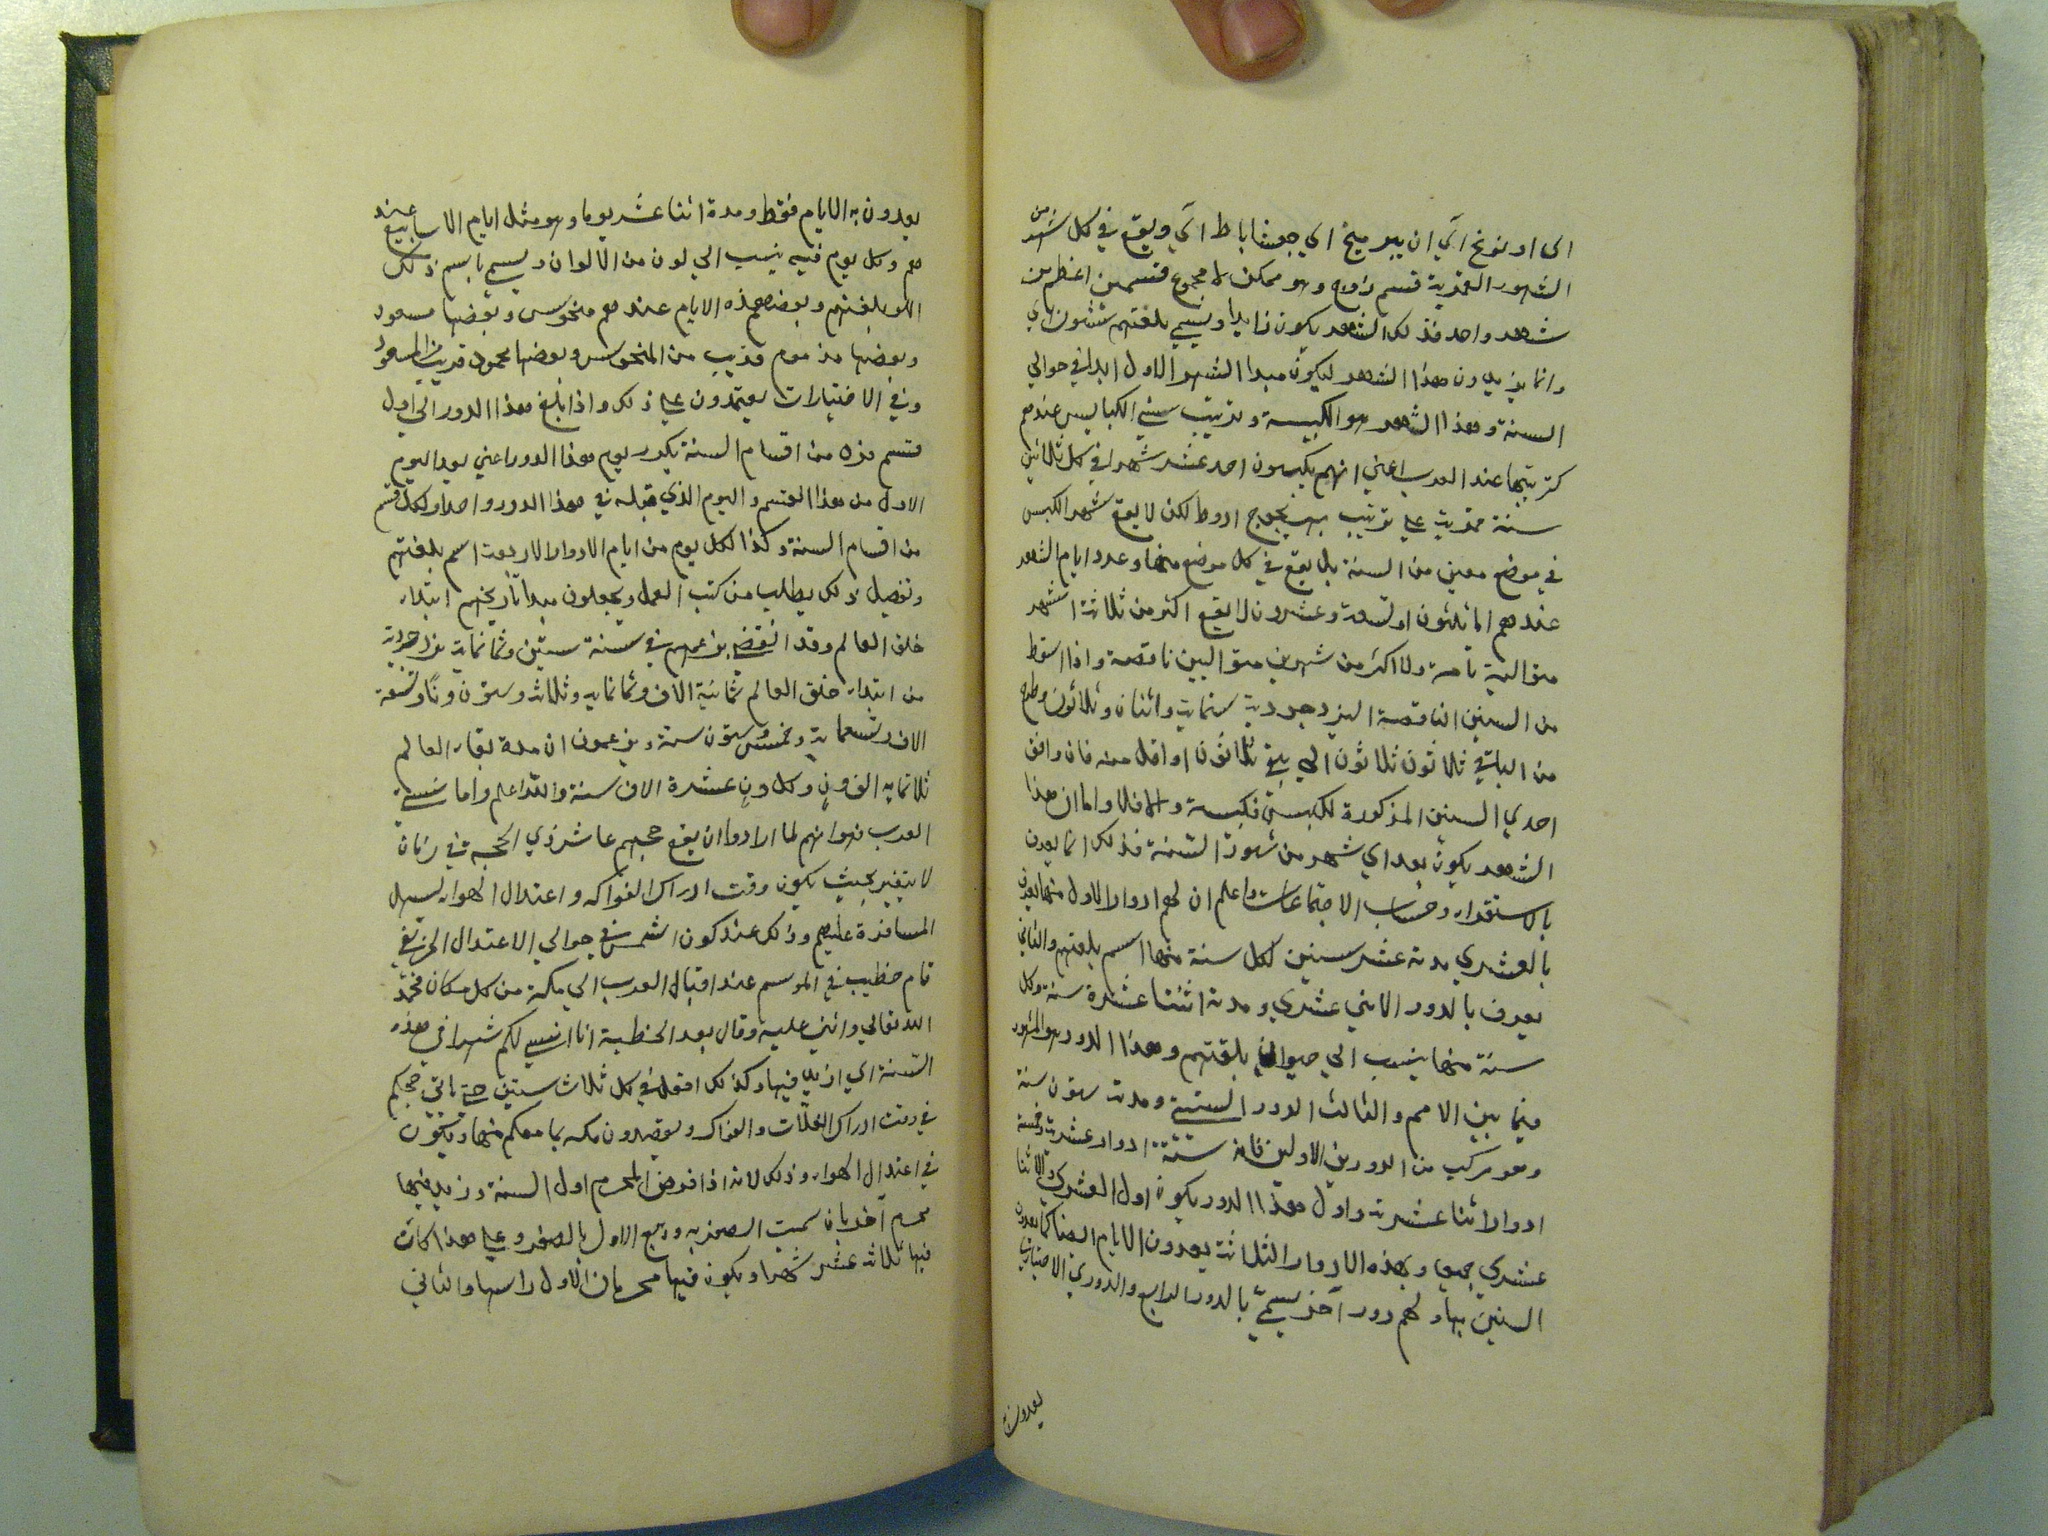 الى اونونج آي ان بير ميخ اي جقشاباط آي ويقع في كل شهر من
الشهور القمرية قسم زوج وهو ممكن لا مجموع قسمين اعظم من
شهر واحد فذلك الشهر يكون زايدا ويسمي بلغتهم ششون آي
وانما يزيدون هذا الشهر ليكون مبدا الشهر الاول ابدا في حوالي
السنة وهذا الشهر هو الكبيسة وترتيب سني الكبايس عندهم
كترتيبها عند العرب اعني انهم يكبسون احد عشر شهرا في كل ثلاثين
سنة قمرية على ترتيب بهزيجوح ادوط لكن لا يقع شهر الكبس
في موضع معين من السنة بل يقع في كل موضع منها وعدد ايام الشهر
عندهم اما ثلثون او تسعة وعشرون لا يقع اكثر من ثلاثة اشهر
متوالية تامة ولا اكثر من شهرين متواليين ناقصة واذا اسقط
من السنين الناقصة اليزدجردية ستماية واثنان وثلاثون وطرح
من الباقي ثلاثون ثلاثون الى ان يبقى ثلاثون او اقل منه فان وافق
احدي السنين المذكورة للكبس فكبيسة والا فلا واما ان هذا
الشهر يكون بعد اي شهر من شهور السنة فذلك انما يعرف
بالاستقراء وحساب الاجتماعات واعلم ان لهم ادوارا الاول منها يعرف
بالعشري مدته عشر سنين لكل سنة منها اسم بلغتهم والثاني
يعرف بالدور الاثني عشري ومدته اثنتا عشرة سنة وكل
سنة منها ينسب الي حيوان بلغتهم وهذا الدور هو المشهور
فيما بين الامم والثالث الدور الستيني ومدته ستون سنة
وهو مركب من الدورين الاولين فانه ستة ادوار عشرية وخمسة
ادوار اثنا عشرية واول هذا الدور يكون اول العشري والاثنا
عشري جميعا وبهذه الادوار الثلاثة يعدون الايام ايضا كما يعدون
السنين بها ولهم دور آخر يسمي بالدور الرابع والدور الاختياري
يعدون به
يعدون به الايام فقط ومدة اثنا عشر يوما وهو مثل ايام الاسابيع عند
هم وكل يوم فيه ينسب الي لون من الالوان ويسمى باسم ذلك
اللون بلغتهم وبعض هذه الايام عندهم منحوس وبعضها مسعود
وبعضها مذموم قريب من المنحوس وبعضها محمود قريب من المسعود
وفي الاختيارات يعتمدون على ذلك واذا بلغ هذا الدور الي اول
قسم فرد من اقسام السنة يكرر يوم هذا الدور اعني يعد اليوم
الاول من هذا القسم واليوم الذي قبله في هذا الدور واحدا ولكل قسم
من اقسام السنة وكذا لكل يوم من ايام الادوار الاربعة اسم بلغتهم
وتفصيل ذلك يطلب من كتب العمل ويجعلون مبدا تاريخهم ابتداء
خلق العالم وقد انقضى بزعمهم في سنة ستين وثمانماية يزدجردية
من ابتداء خلق العالم ثمانية الاف وثمانماية وثلاث وستون ونا وتسعة
الاف وتسعماية وخمس وستون سنة ويزعمون ان مدة بقاء العالم
ثلاثمايه الف ون وكل ون عشرة الاف سنة والله اعلم واما نسيء
العرب فهو انهم لما ارادوا ان يقع حجهم عاشر ذي الحجة في زمان
لا يتغير بحيث يكون وقت ادراك الفواكه واعتدال الهواء ليسهل
المسافرة عليهم وذلك عند كون الشمس في حوالي الاعتدال الخريفي
قام خطيب في الموسم عند اقبال العرب الي مكة من كل مكان فحمد
الله تعالي واثني عليه وقال بعد الخطبة انا انسيء لكم شهرا في هذه
السنة اي ازيد فيها وكذلك افعل في كل ثلاث سنين حتى ياتي حجكم
في وقت ادراك الغلات والفواكه وتقصدون مكه بما معكم منها ويكون
في اعتدال الهواء وذلك لانه اذا فرض المحرم اول السنة وزيد فيها
محرم آخر بان سميت الصفر به وربيع الاول بالصفر وعلى هذا كانت
فيها ثلاثة عشر شهرا ويكون فيها محرمان الاول راسها والثاني